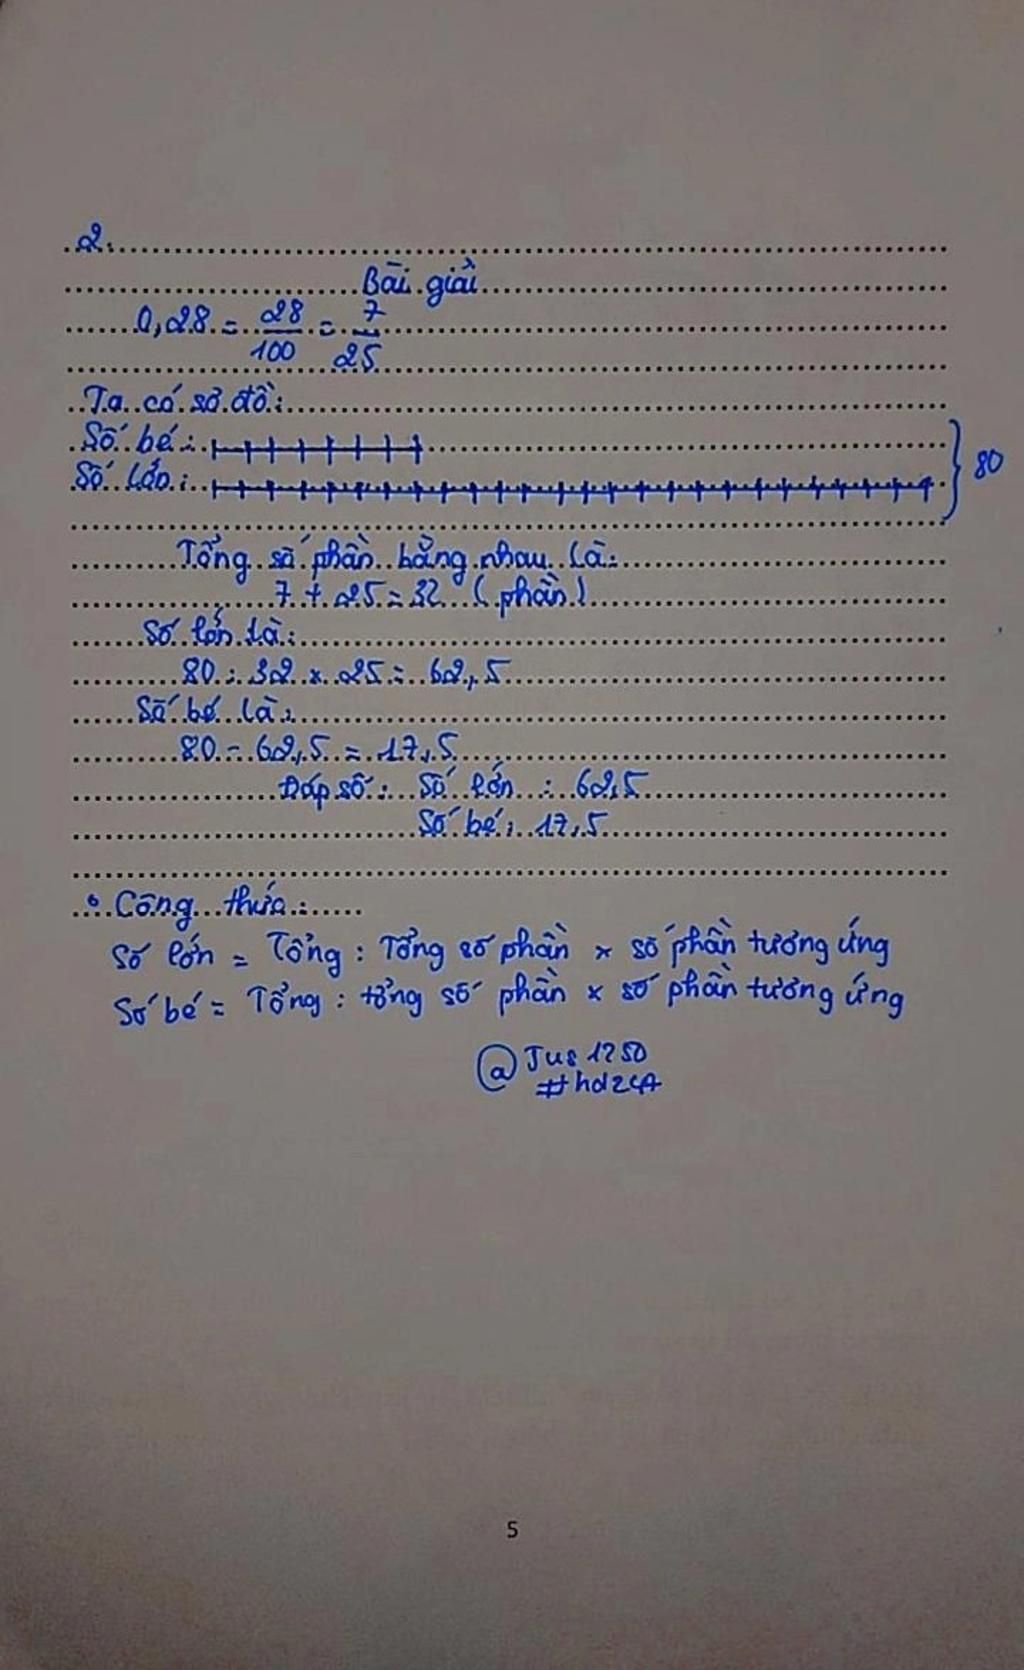 2.
Bài giải
0,28 = 28/100 = 7/25
Ta có sơ đồ:
Số bé:
Số lớn:
80
Tổng số phần bằng nhau là:
7 + 25 = 32 (phần)
Số lớn là:
80 : 32 x 25 = 62,5
Số bé là:
80 - 62,5 = 17,5
Đáp số: Số lớn: 62,5
Số bé: 17,5
Công thức:
Số lớn = Tổng : Tổng số phần x số phần tương ứng
Số bé = Tổng : tổng số phần x số phần tương ứng
@Jus1250
5